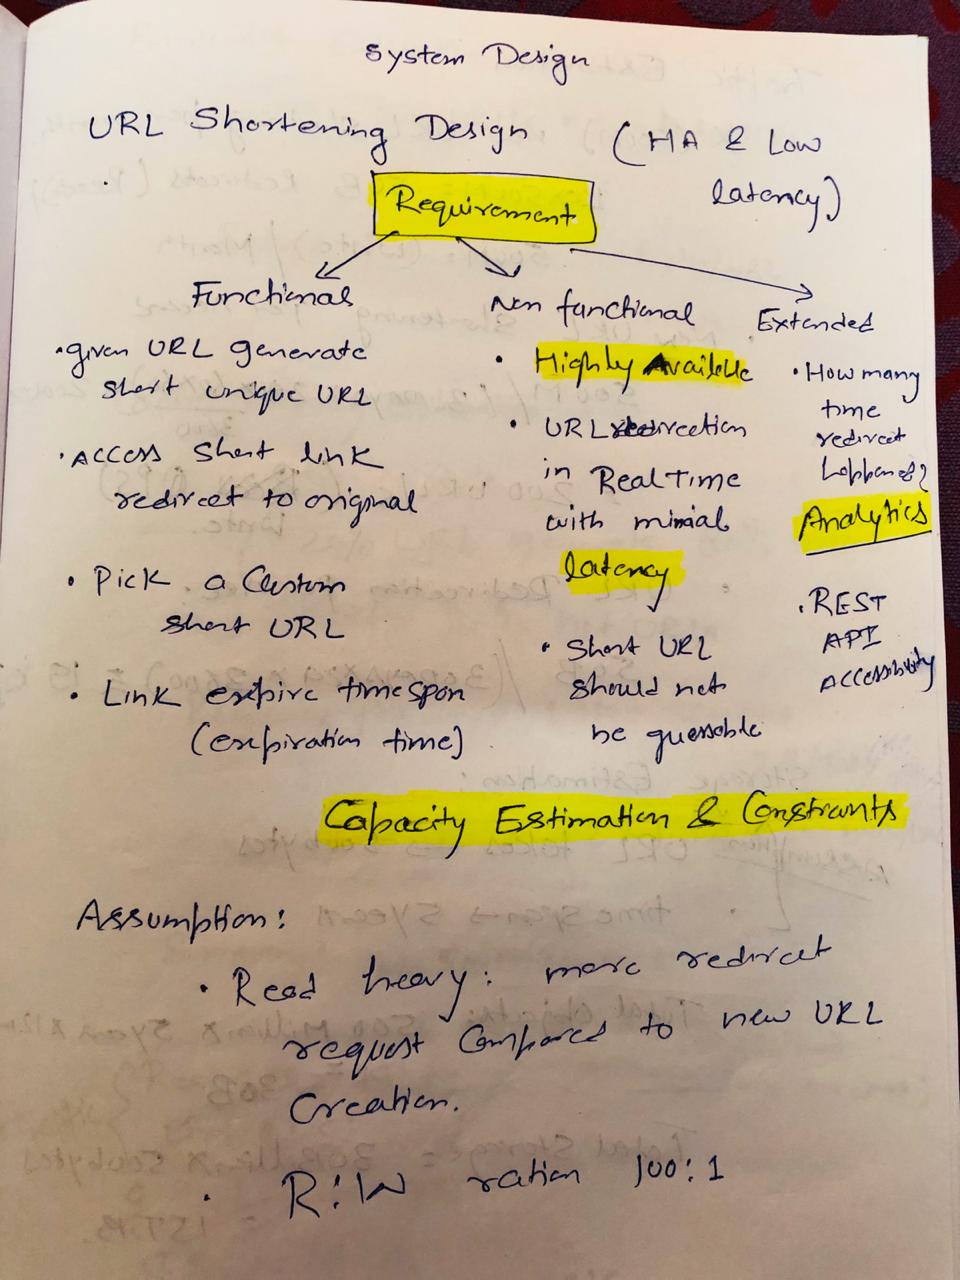 System Design
URL Shortening Design (HA & Low
latency)
Requirement
Functional
• given URL generate
short unique URL
• Access short link
redirect to original
• Pick a Custom
short URL
• Link expire timespan
(expiration time)
Non functional
• Highly Available
• URL redirection
in RealTime
with minial
latency
• Short URL
should not
be guessable
Extended
• How many
time
redirect
happened?
Analytics
• REST
API
Accessibility
Capacity Estimation & Constraints
Assumption:
• Read heavy: more redirect
request compared to new URL
Creation.
• R:W ration 100:1